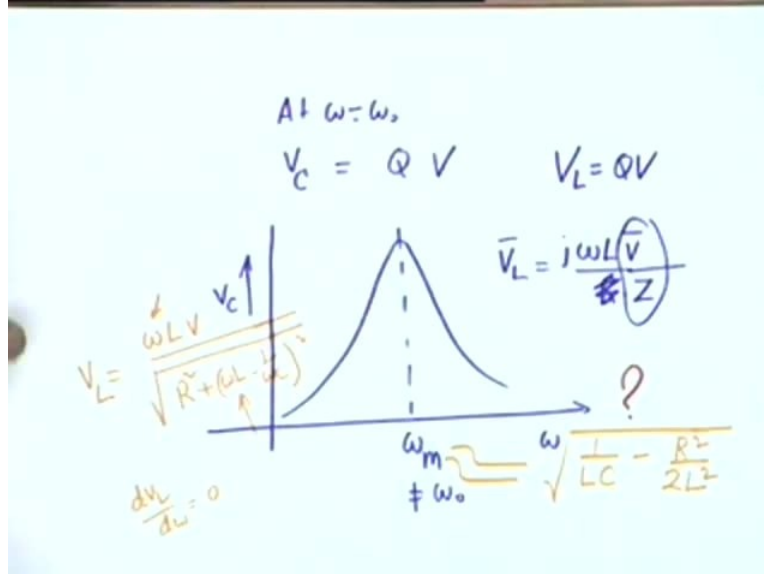 At ω = ω₀
V_C = Q V
V_L = QV
V̄_L = jωL V̄ / Z
V_C ↑
V_L = ωLV / √(R² + (ωL - 1/ωC)²)
?
ω_m
≠ ω₀
ω
√(1/LC - R²/2L²)
dV_L/dω = 0